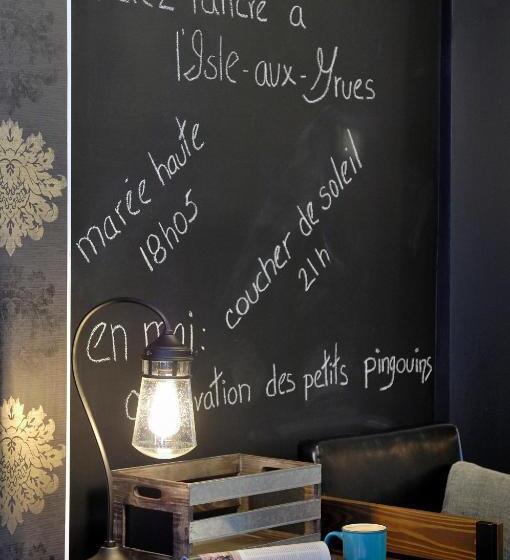 l'ancre à
l'Isle-aux-Grues
marée haute
18h05
coucher de soleil
21h
en mai:
des petits pingouins